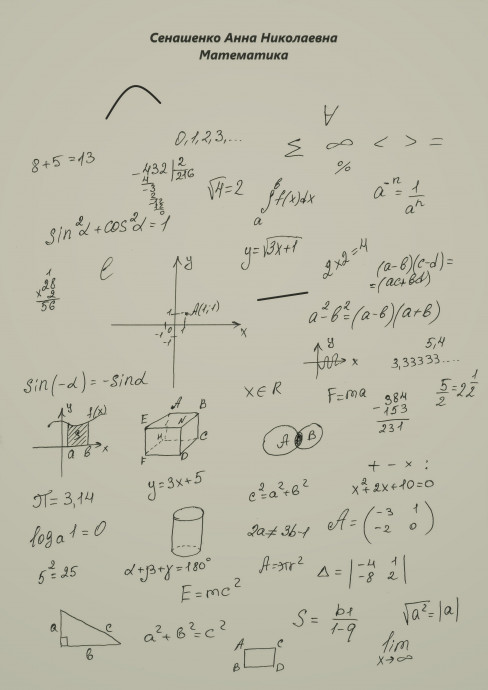 Сенашенко Анна Николаевна
Математика
∀
0,1,2,3,...
∑ ∞ < > =
%
8+5=13
-432|2
216
√4=2
∫f(x)dx
a
b
a⁻ⁿ = 1/aⁿ
sin²α+cos²α=1
y=√3x+1
2×2=4
(a-b)(c-d)=
=(ac+bd)
1
28
×2
56
ℓ
y
A(1;1)
1
-1 0 1
-1
x
a²-b²=(a-b)(a+b)
y
x
5,4
3,33333....
sin(-α)=-sinα
x∈R
F=ma
984
-153
231
5/2=2 1/2
y
f(x)
S
a b x
A B
E N
M C
F D
A B
+ - × :
π=3,14
y=3x+5
c²=a²+b²
x²+2x+10=0
log a 1=0
2a≠3b-1
A=(-3 1
-2 0)
5²=25
α+β+γ=180°
A=πr²
Δ=|-4 1
-8 2|
E=mc²
a c
b
a²+b²=c²
S=b1/1-q
√a²=|a|
A C
B D
lim
x→∞